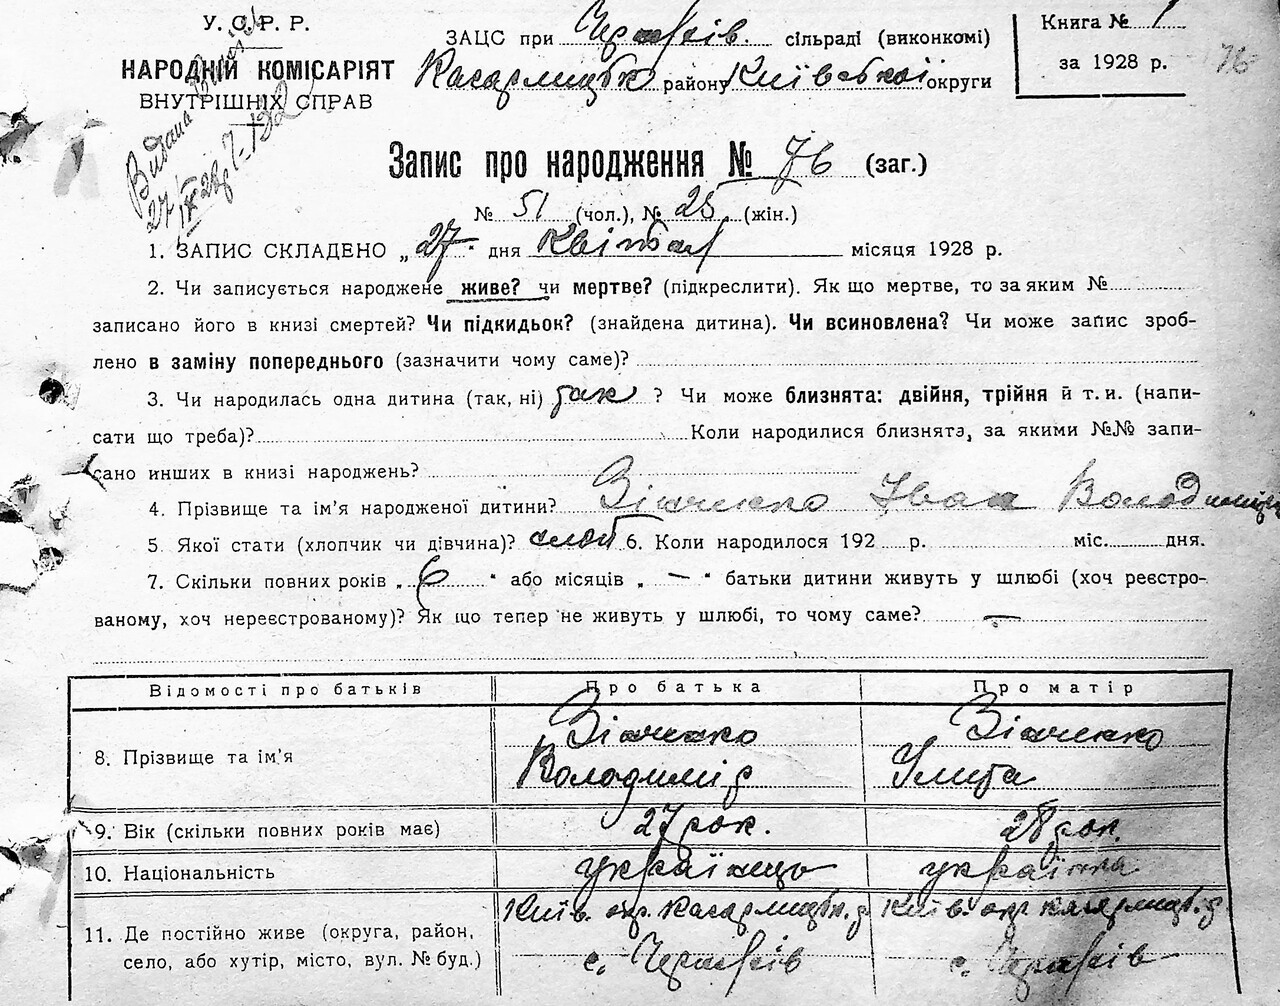 У. С. Р. Р.
НАРОДНІЙ КОМІСАРІЯТ
ВНУТРІШНІХ СПРАВ
Видана
27/IX 28 р.
ЗАЦС при сільраді (виконкомі)
району Київської округи
Книга № 1
за 1928 р.
76
Запис про народження № 76 (заг.)
№ 51 (чол.), № 25 (жін.)
1. ЗАПИС СКЛАДЕНО „ 27 “ дня Квітня місяця 1928 р.
2. Чи записується народжене живе? чи мертве? (підкреслити). Як що мертве, то за яким №
записано його в книзі смертей? Чи підкидьок? (знайдена дитина). Чи всиновлена? Чи може запис зроб-
лено в заміну попереднього (зазначити чому саме)?
3. Чи народилась одна дитина (так, ні) так ? Чи може близнята: двійня, трійня й т. и. (напи-
сати що треба)? Коли народилися близнята, за якими №№ запи-
сано инших в книзі народжень?
4. Прізвище та ім’я народженої дитини? Зінченко Іван
5. Якої стати (хлопчик чи дівчина)? 6. Коли народилося 192 р. міс. дня.
7. Скільки повних років „ 6 “ або місяців „ — “ батьки дитини живуть у шлюбі (хоч реєстро-
ваному, хоч нереєстрованому)? Як що тепер не живуть у шлюбі, то чому саме? —
Відомості про батьків Про батька Про матір
8. Прізвище та ім’я Зінченко Володимір Зінченко Улита
9. Вік (скільки повних років має) 27 рок. 28 рок.
10. Національність українець українка
11. Де постійно живе (округа, район,
село, або хутір, місто, вул. № буд.)
Київ. окр. Київ. окр.
с. с.